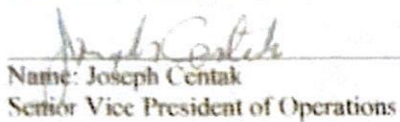 Joseph Centak
Name: Joseph Centak
Senior Vice President of Operations